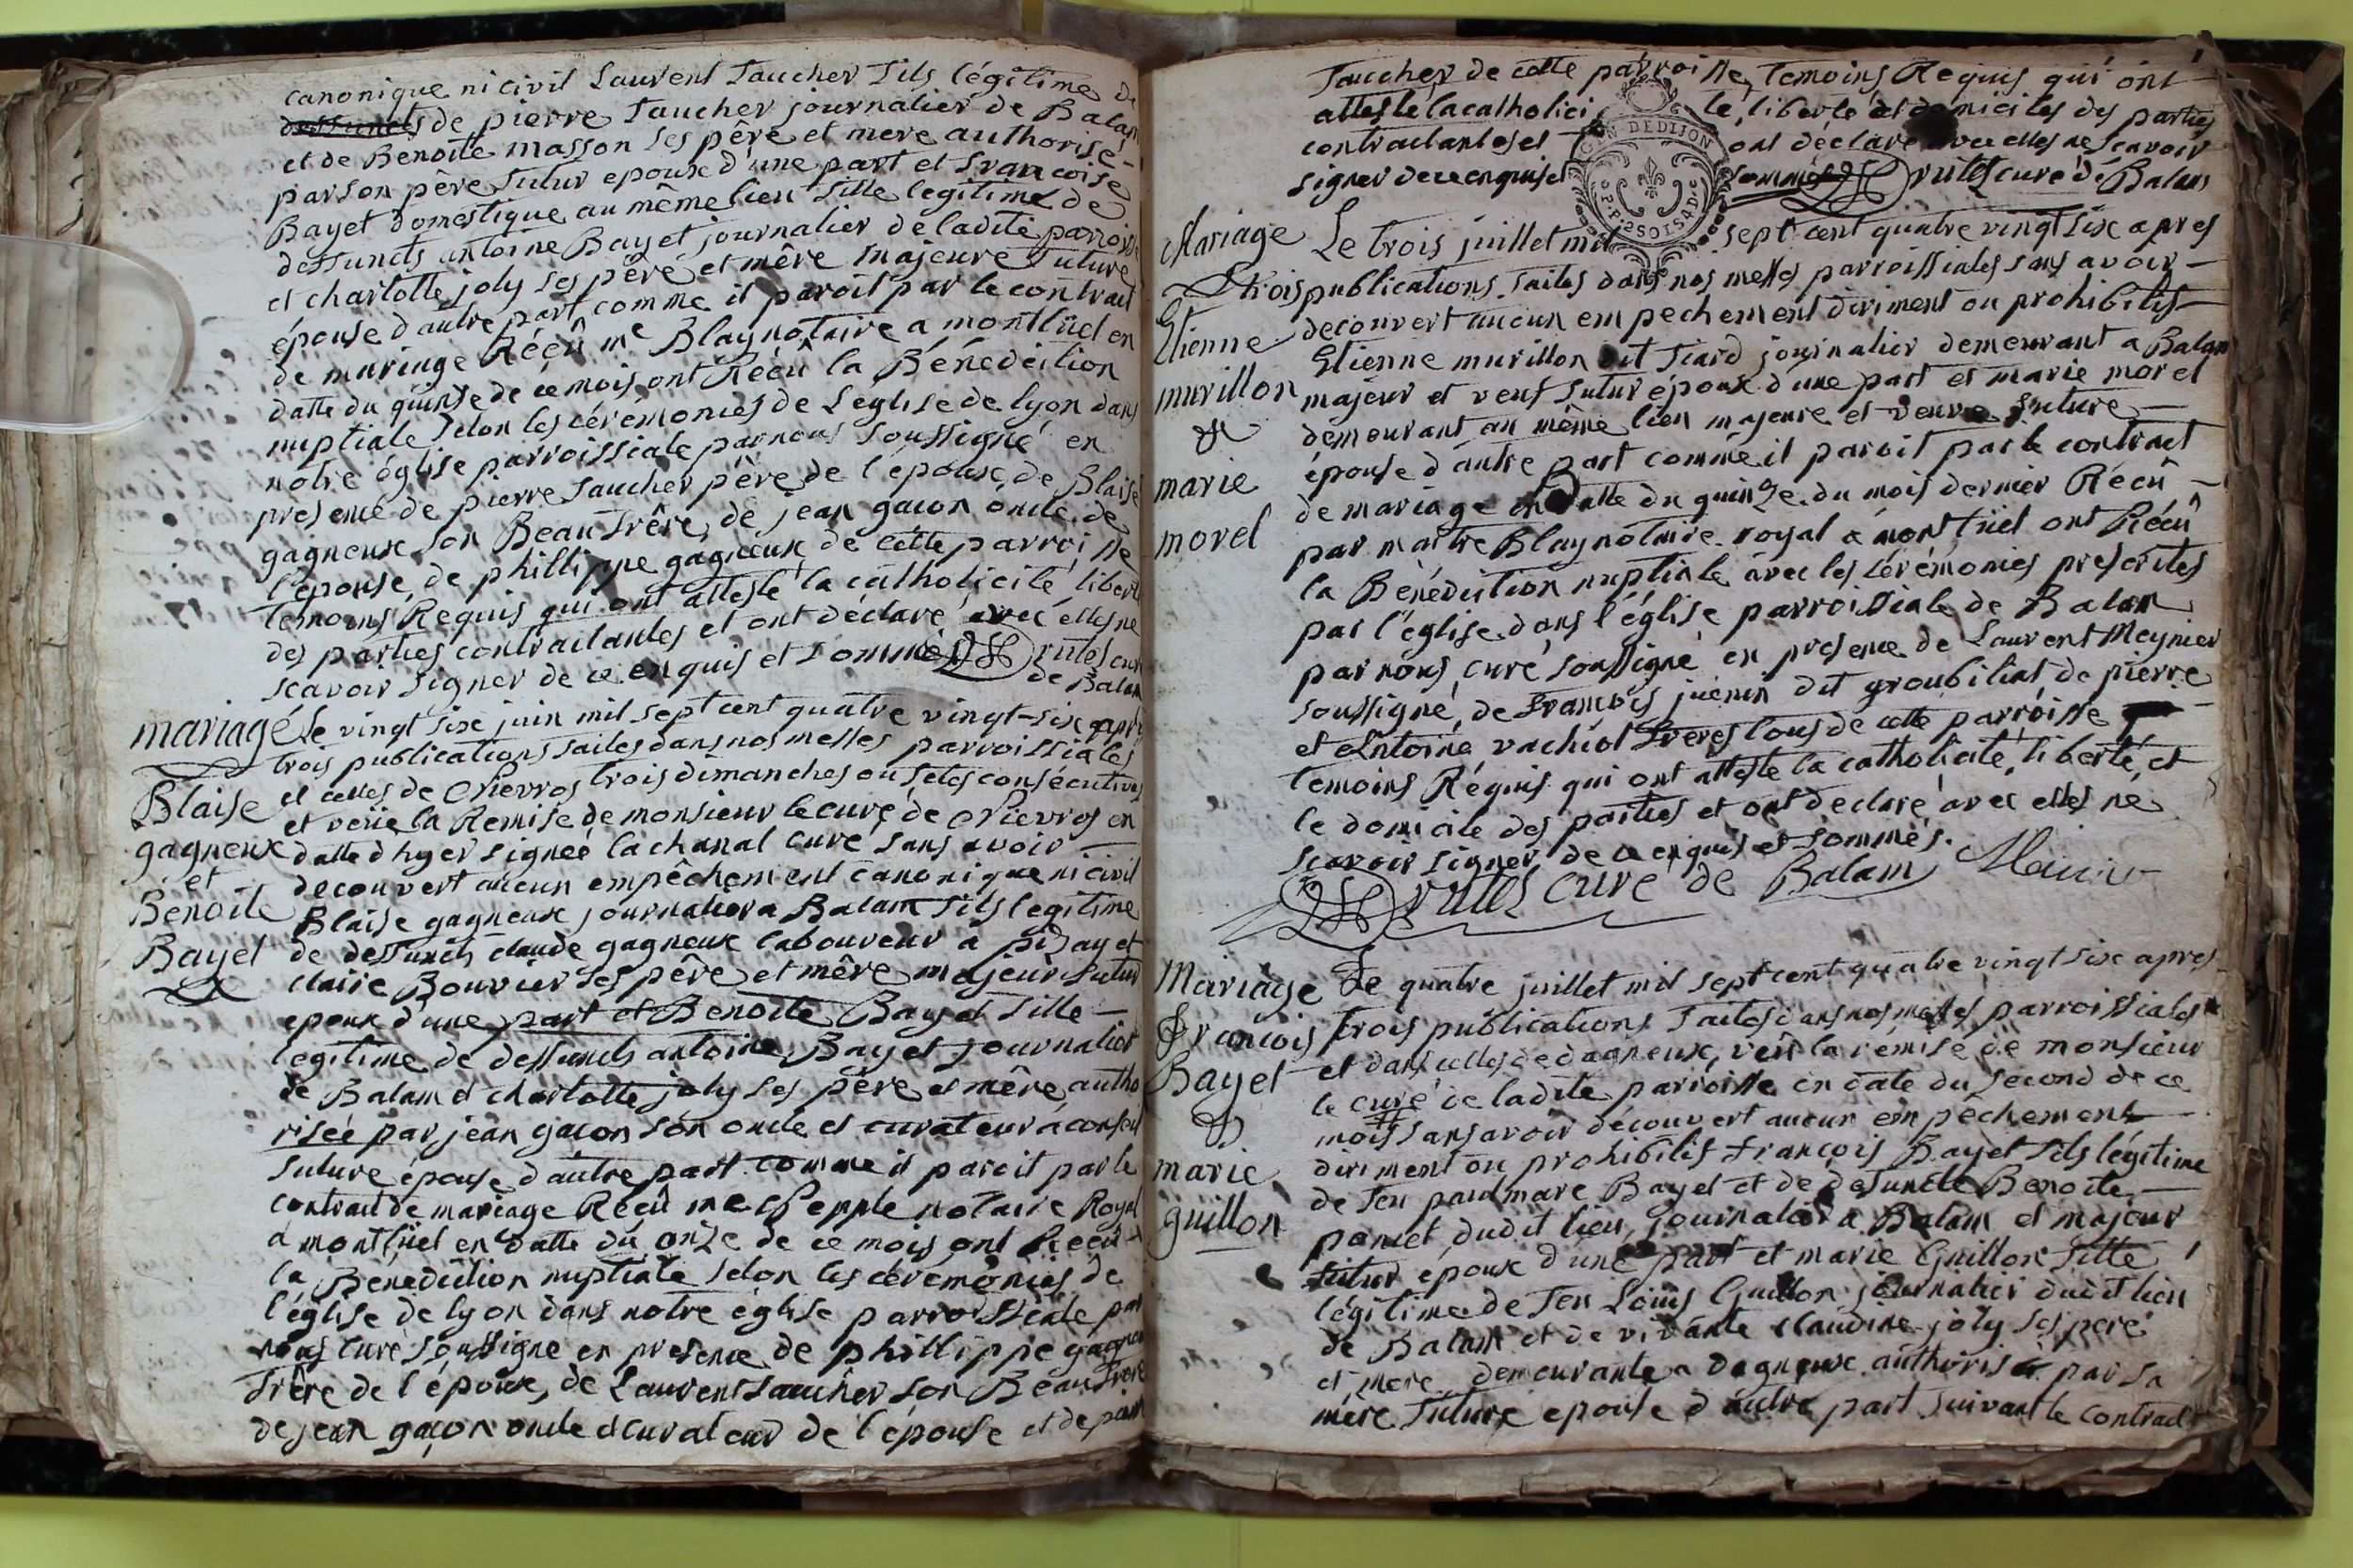 canonique ni civil Laurent faucher fils légitime de
deffuncts de pierre faucher journalier de Balam
et de Benoite masson ses père et mere authorisé
par son père futur epoux d'une part et francoise
Bayet domestique au même lieu fille legitime de
deffuncts antoine Bayet journalier de ladite parroisse
et charlotte joly ses père et mêre majeure future
épouse d'autre part comme il paroit par le contract
de mariage Réçû me Blay notaire a montlüel en
datte du quinze de ce mois ont Réçu la Bénédiction
nuptiale selon les cérémonies de L'eglise de lyon dans
notre église parroissiale par nous soussigné en
presence de pierre faucher père de l'epoux, de Blaise
gagneux son Beaufrère, de jean gacon oncle de
l'epouse, de phillippe gagneux de cette parroisse
temoins Requis qui ont attesté la catholicité, liberté
des parties contractantes et ont déclaré avec elles ne
scavoir signer de ce enquis et sommés curé
de Balam
mariage Le vingt six juin mil sept cent quatre vingt-six après
trois publications faites dans nos messes parroissiales
Blaise et celles de Nievroz trois dimanches ou fetes consécutives
et veüe la Remise de monsieur le curé de Nievroz en
gagneux datte d'hyer signée lachanal curé sans avoir
et decouvert aucun empêchement canonique ni civil
Benoite Blaise gagneux journalier a Balam fils legitime
Bayet de deffuncts claude gagneux laboureur a pizay et
claire Bouvier ses père et mêre majeur futur
epoux d'une part et Benoite Bayet fille
legitime de deffuncts antoine Bayet journalier
de Balam et charlotte joly ses père et mêre autho
risée par jean gacon son oncle et curateur a conseil
future épouse d'autre part comme il paroit par le
contract de mariage Récû me notaire Royal
a montlüel en datte du onze de ce mois ont Récû
la Bénédiction nuptiale selon les céremonies de
l'église de lyon dans notre église parroissiale par
nous curé soussigné en presence de phillippe gagneux
frêre de l'époux, de Laurent faucher son Beaufrere
de jean gaçon oncle et curateur de l'épouse et de pierre
faucher de cette parroisse, temoins Requis qui ont
attesté la catholicité, liberté et domiciles des parties
contractantes et ont déclaré avec elles ne scavoir
signer de ce enquis et sommés curé de Balam
GEN DE DIJON
Mariage Le trois juillet mil sept cent quatre vingt six apres
trois publications faites dans nos messes parroissiales sans avoir
Etienne decouvert aucun empechement diriment ou prohibitif
Etienne murillon dit fiard journalier demeurant a Balam
murillon majeur et veuf futur époux d'une part et marie morel
& demeurant au même lieu majeure et veuve future
marie épouse d'autre part comme il paroit par le contract
de mariage en datte du quinze du mois dernier Récû
morel par maitre Blay notaire royal a montlüel ont Récû
la Bénédiction nuptiale avec les cérémonies prescrites
par l'église dans l'église parroissiale de Balam
par nous curé soussigné en presence de Laurent Meynier
soussigné, de françois juenin dit groubilins de pierre
et Antoine vachiot freres tous de cette parroisse
temoins Réquis qui ont attesté la catholicité, liberté, et
le domicile des parties et ont declaré avec elles ne
scavoir signer de ce enquis et sommés.
curé de Balam
Mariage Le quatre juillet mil sept cent quatre vingt six apres
françois trois publications faites dans nos messes parroissiales
Bayet et dans celles de dagneux, veü la rémise de monsieur
le curé de ladite parroisse en date du second de ce
& mois sans avoir découvert aucun empêchement
marie diriment ou prohibitif françois Bayet fils légitime
de feu marc Bayet et de defuncte Benoite
guillon pancet dudit lieu, journalier a Balam et majeur
futur époux d'une part et marie Guillon fille
légitime de feu Loüis Guillon journalier dudit lieu
de Balam et de vivante claudine joly ses pere
et mere demeurante a dagneux authorisée par sa
mère future epouse d'autre part suivant le contract